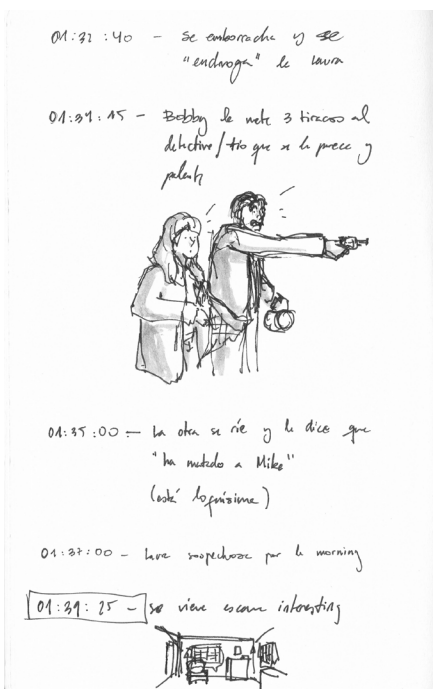 01:32:40 - se emborracha y se
"endroga" la Laura
01:34:15 - Bobby le mete 3 tirazos al
detective/tío que se le parece y
01:35:00 - La otra se ríe y le dice que
"ha matado a Mike"
(está loquísima)
01:37:00 - Laura sospechosa por la morning
01:39:25 - se viene escena interesting